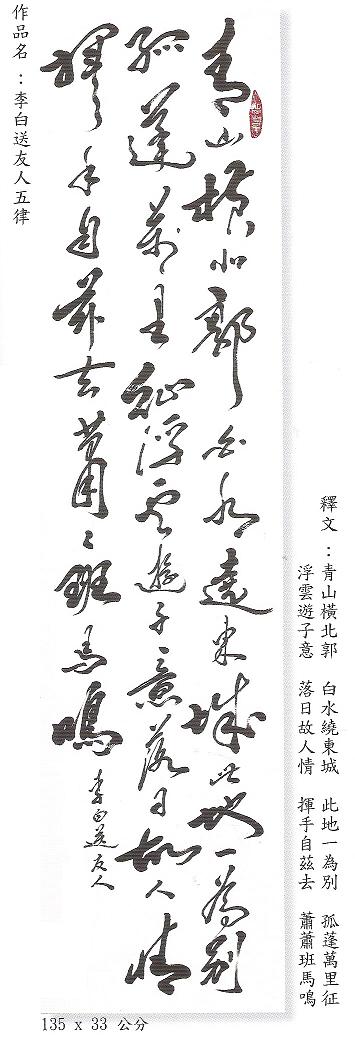 作品名：李白送友人五律
青山橫北郭白水繞東城此地一為別
孤蓬萬里征浮雲遊子意落日故人情
揮手自茲去蕭々班馬鳴
李白送友人
釋文：青山橫北郭 白水繞東城 此地一為別 孤蓬萬里征
浮雲遊子意 落日故人情 揮手自茲去 蕭蕭班馬鳴
135 x 33 公分